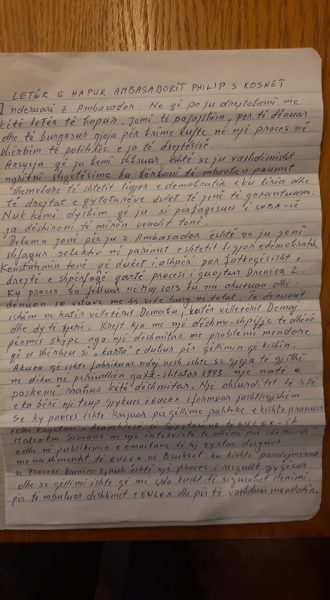 LETËR E HAPUR AMBASADORIT PHILIP S KOSNET
I nderuari z. Ambasador. Ne që po ju drejtohemi me
këtë letër të hapur, jemi të pafajshëm, por të dënuar
dhe të burgosur gjoja për krime lufte në një proces në
shërbim të politikës e jo të drejtësisë.
Arsyeja që ju kemi shkruar, është se ju vazhdimisht
ngritni shqetësime ku kërkoni të mbrohen parimet
themelore të shtetit ligjor e demokratik e ku liria dhe
të drejtat e qytetarëve duhet të jenë të garantuara.
Nuk kemi dyshim që ju si përfaqësues i SHBA-së
ja dëshironi të mirën vendit tonë.
Dilema jonë për ju z. Ambasador është se ju jeni
shfaqur selektiv në parimet e shtetit ligjor e demokratik.
Konstatimin tonë që duket i ashpër por fatkeqësisht i
drejtë e shpërfaq qartë procesi i quajtur Drenica 2.
Ky proces ka filluar në Maj 2013 ku na akuzuan dhe
denuan 10 vetave me 44 vite burg në total. Të denuarit
ishim ne katër vëllezërit Demaku, katër vëllezërit Demaj
dhe dy të tjerë. Krejt kjo me një dëshmi shpifëse të dhënë
përmes skype nga një dëshmitar me probleme mendore
që u shërbeu si "karta" e duhur për qëllimin që kishin.
Akuza që ishte fabrikuar ndaj nesh ishte se gjoja të gjithë
ne diku në periudhën gusht-shtator 1998 një natë e
paskemi rrahur këtë dëshmitar. Një absurditet të tillë
e ka bërë një trup gjykues i EULEX-it
Se ky proces ishte kurdisur për qëllime politike e kishte pranuar
edhe kryetari i Asamblesë së Gjyqtarëve të EULEX-it
Malcolm Simmons në një intervistë të dhënë për
edhe në publikimin e emailave të tij zyrtar dërguar
menaxhmentit të EULEX në Bruksel, ku kishte paralajmëruar
se Procesi Drenica nuk është një proces i rregullt gjyqësor
dhe se qëllimi ishte që me çdo kusht të sigurohet dënimi
për të mbuluar dështimet e EULEX dhe për të vazhduar mandatin.